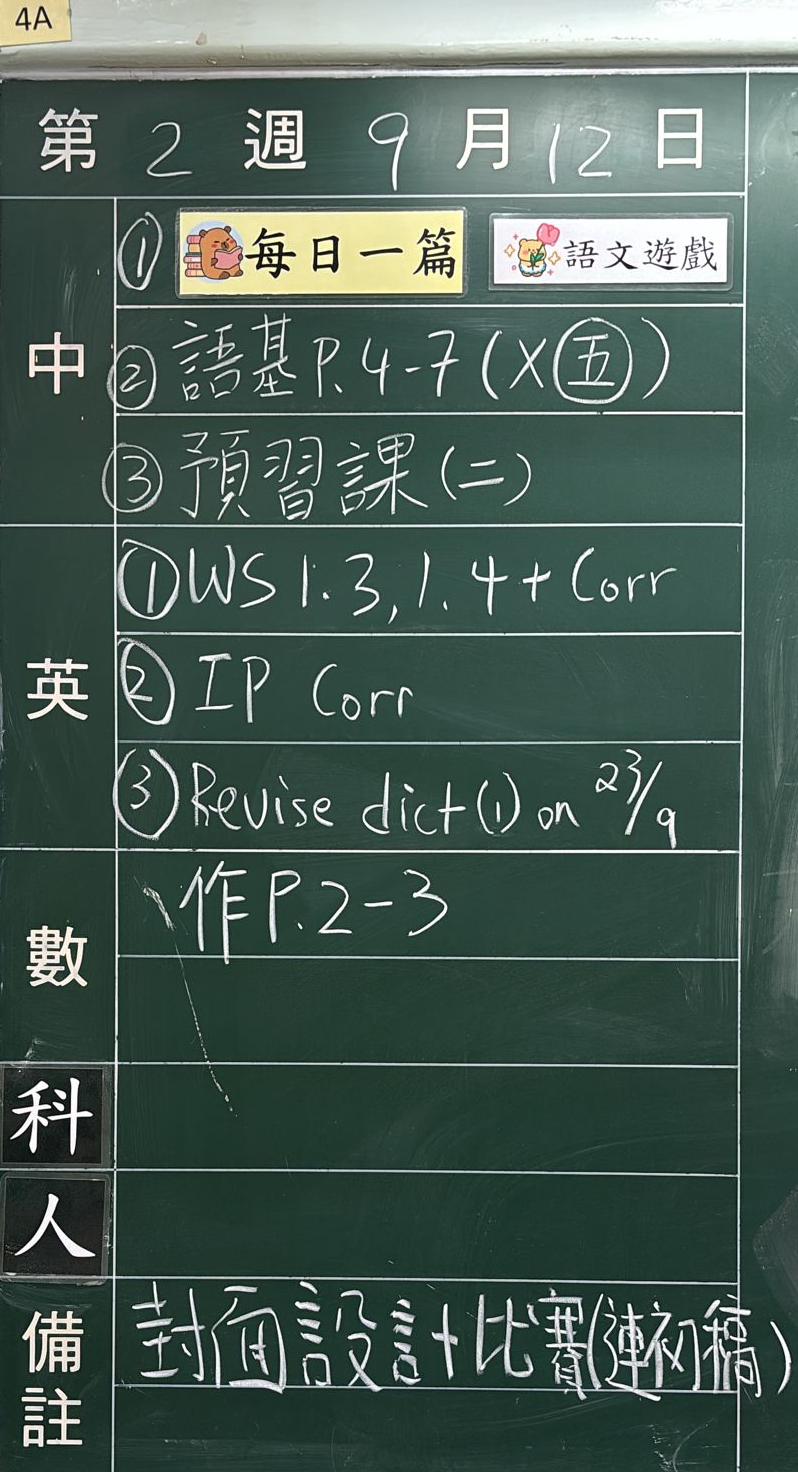 4A
第 2 週 9 月 12 日
中
① 每日一篇 語文遊戲
② 語基 P. 4-7 (X五)
③ 預習課(二)
英
① WS 1.3, 1.4 + Corr
② IP Corr
③ Revise dict (1) on 23/9
數
作 P. 2-3
科
人
備註
封面設計比賽(連初稿)